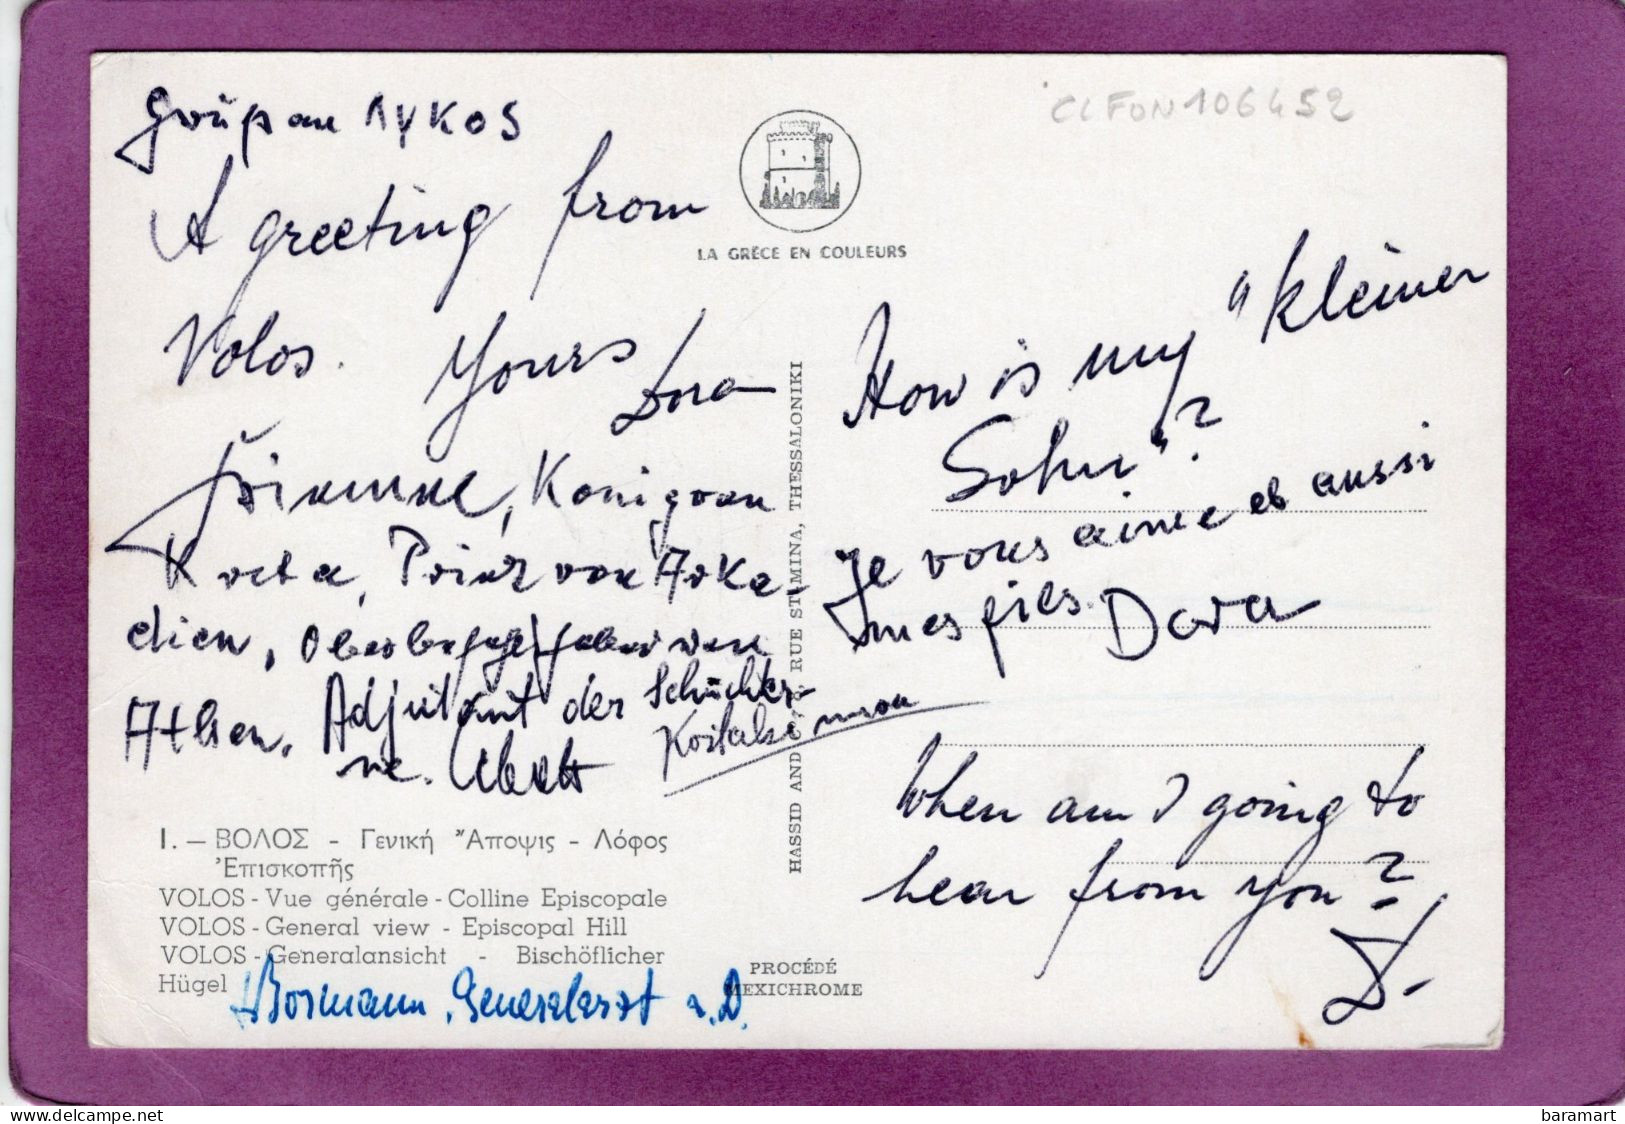 CLFON106452
Gruß an ΛΥΚΟS
A greeting from
Volos. Yours
Dora
König von
Kreta, Prinz von Arka-
dien, von
Athen, Adjutant der Schüchter-
ne.
LA GRÈCE EN COULEURS
How is my "kleiner
Sohn"?
Je vous aime et aussi
mes fils. Dora
When am I going to
hear from you?
D.
HASSID AND RUE ST. MINA, THESSALONIKI
I. — ΒΟΛΟΣ - Γενική Ἄποψις - Λόφος
Ἐπισκοπῆς
VOLOS - Vue générale - Colline Episcopale
VOLOS - General view - Episcopal Hill
VOLOS - Generalansicht - Bischöflicher
Hügel
Bormann, Generalarzt a. D.
PROCÉDÉ
MEXICHROME
baramart